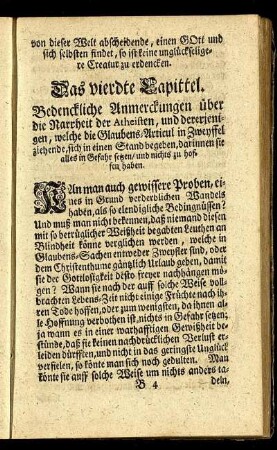 von dieser Welt abscheidende, einen GOtt und
sich selbsten findet, so ist keine unglückselige-
re Creatur zu erdencken.
Das vierdte Capittel.
Bedenckliche Anmerckungen über
die Narrheit der Atheisten, und dererjeni-
gen, welche die Glaubens-Articul in Zweyffel
ziehende, sich in einen Stand begeben, darinnen sie
alles in Gefahr setzen/ und nichts zu hof-
fen haben.
KAn man auch gewissere Proben, ei-
nes in Grund verderblichen Wandels
haben, als so elendigliche Bedingnüssen?
Und muß man nicht bekennen, daß niemand diesen
mit so betrüglicher Weißheit begabten Leuthen an
Blindheit könne verglichen werden, welche in
Glaubens-Sachen entweder Zweyfler sind, oder
dem Christenthume gäntzlich Urlaub geben, damit
sie der Gottlosigkeit desto freyer nachhängen mö-
gen? Wann sie nach der auff solche Weise voll-
brachten Lebens-Zeit nicht einige Früchte nach ih-
ren Tode hoffen, oder zum wenigsten, da ihnen al-
le Hoffnung verbothen ist, nichts in Gefahr setzen;
ja wann es in einer warhafftigen Gewißheit be-
stünde, daß sie keinen nachdrücklichen Verlust er-
leiden dürfften, und nicht in das geringste Unglück
verfielen, so könte man sich noch gedulten. Man
könte sie auff solche Weise um nichts anders ta-
B 4 deln,